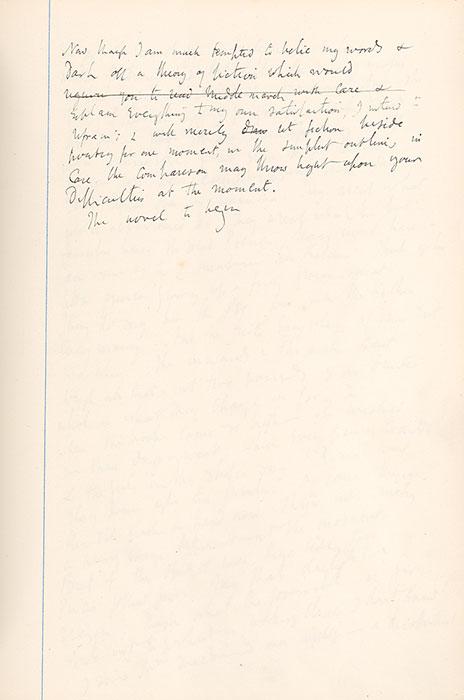 Now though I am much tempted to belie my words &
Dash off a theory of fiction which would
require you to read Middlemarch with care &
Explain Everything to my own satisfaction, I intend to
refrain; & will merely draw set fiction beside
poetry for one moment, in the simplest outline, in
Case the comparison may throw light upon your
Difficulties at the moment.
The novel to begin